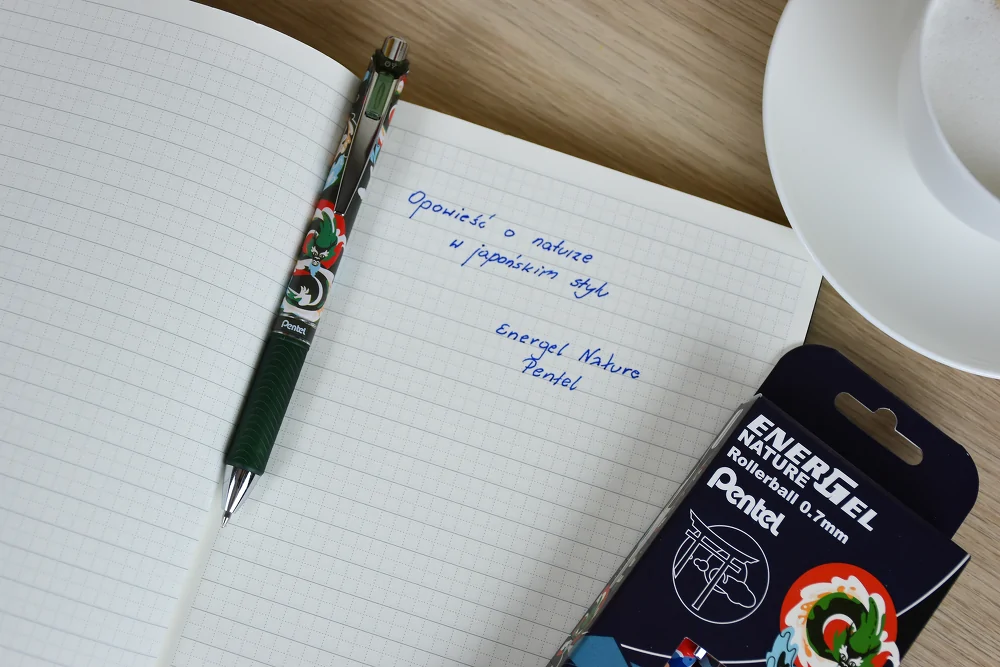 Opowieść o naturze
w japońskim stylu
Energel Nature
Pentel
Pentel
ENERGEL
NATURE
Rollerball 0.7mm
Pentel